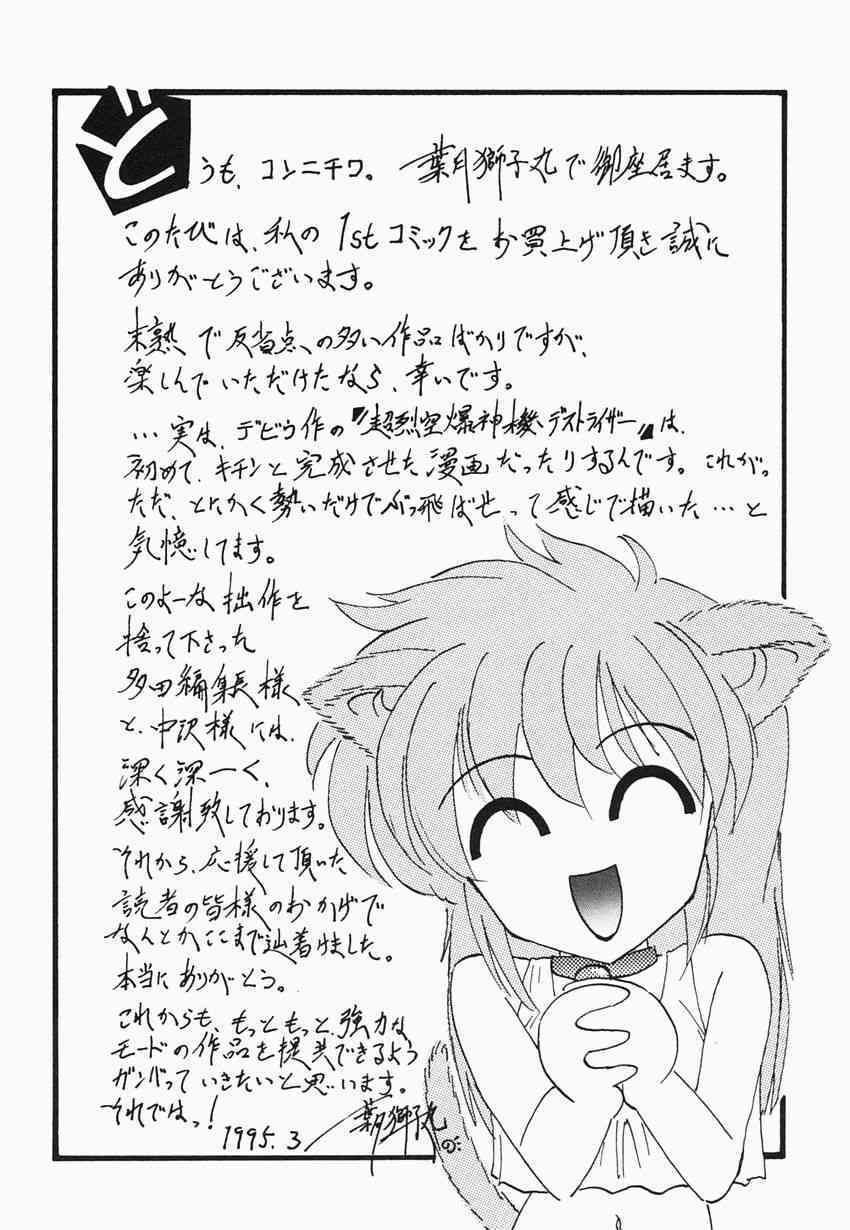 どうも、コンニチワ。葉月獅子丸で御座居ます。
このたびは、私の1stコミックをお買上げ頂き誠に
ありがとうございます。
末熟で反省点の多い作品ばかりですが、
楽しんでいただけたなら、幸いです。
…実は、デビウ作の〝超烈空爆神機デストライザー〟は、
初めて、キチンと完成させた漫画だったりするんです。これが。
ただ、とにかく勢いだけでぶっ飛ばせって感じで描いた…と
気憶してます。
このよーな拙作を
捨って下さった
多田編集長様
と、中沢様には、
深く深ーく、
感謝致しております。
それから、応援して頂いた
読者の皆様のおかげで
なんとかここまで辿着けました。
本当にありがとう。
これからも、もっともっと、強力な
モードの作品を提供できるよう
ガンバっていきたいと思います。
それではっ！
1995.3 葉月獅子丸